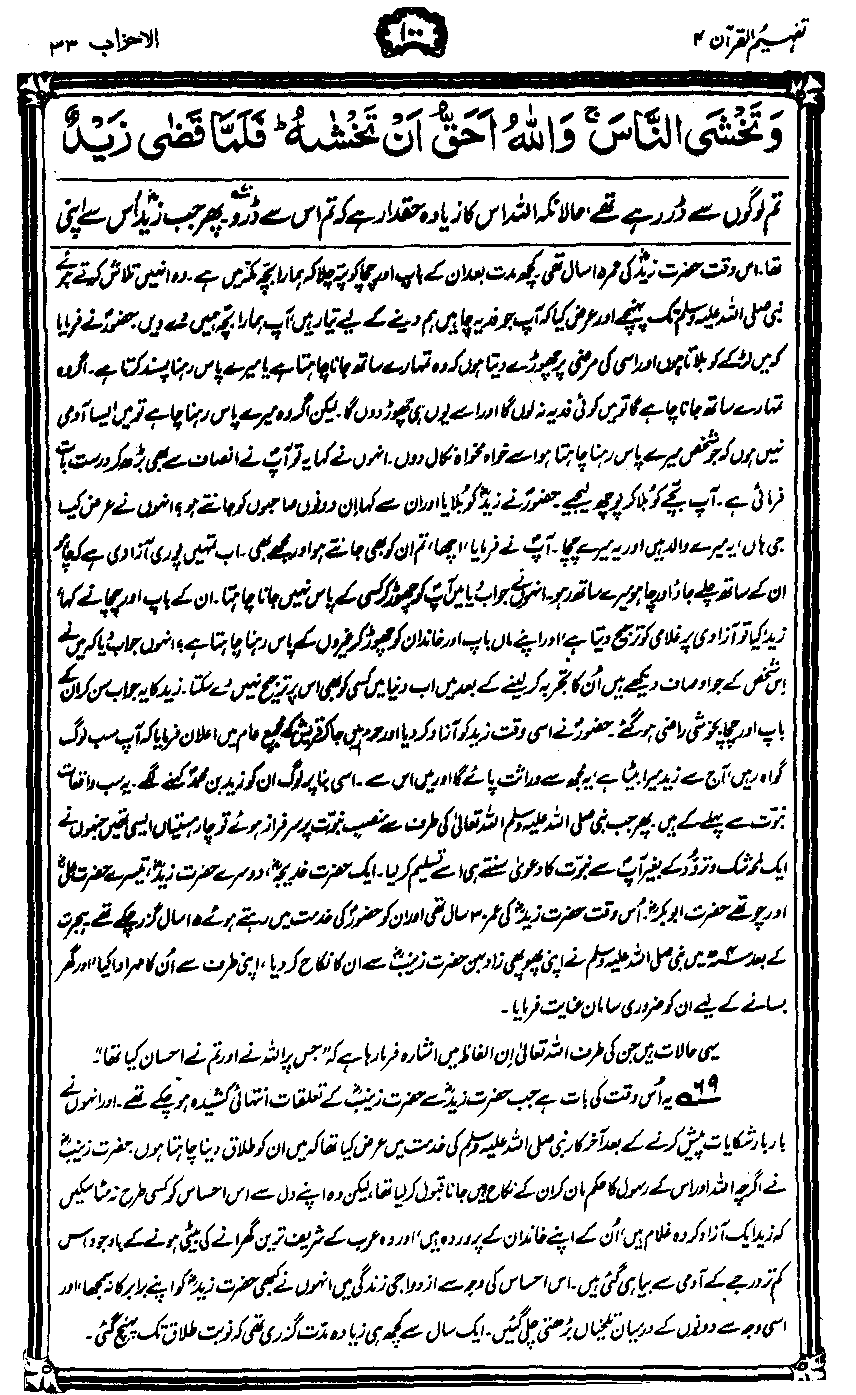 تفہیم القرآن ۴
۱۰۰
الاحزاب ۳۳
وَتَخْشَى النَّاسَ ۚ وَاللّٰهُ اَحَقُّ اَنْ تَخْشٰىهُ ؕ فَلَمَّا قَضٰى زَيْدٌ
تم لوگوں سے ڈر رہے تھے، حالانکہ اللہ اس کا زیادہ حقدار ہے کہ تم اس سے ڈرو۔ پھر جب زیدؓ اُس سے اپنی
تھا۔ اس وقت حضرت زیدؓ کی عمر ۱۵ سال تھی۔ کچھ مدت بعد ان کے باپ اور چچا کو پتہ چلا کہ ہمارا بچہ مکہ میں ہے۔ وہ انہیں تلاش کرتے ہوئے
نبی صلی اللہ علیہ وسلم تک پہنچے اور عرض کیا کہ آپ جو فدیہ چاہیں ہم دینے کے لیے تیار ہیں آپ ہمارا بچہ ہمیں دے دیں۔ حضورؐ نے فرمایا
کہ میں لڑکے کو بلاتا ہوں اور اسی کی مرضی پر چھوڑے دیتا ہوں کہ وہ تمہارے ساتھ جانا چاہتا ہے یا میرے پاس رہنا پسند کرتا ہے۔ اگر وہ
تمہارے ساتھ جانا چاہے گا تو میں کوئی فدیہ نہ لوں گا اور اسے یوں ہی چھوڑ دوں گا۔ لیکن اگر وہ میرے پاس رہنا چاہے تو میں ایسا آدمی
نہیں ہوں کہ جو شخص میرے پاس رہنا چاہتا ہو اسے خواہ مخواہ نکال دوں۔ انہوں نے کہا یہ تو آپؐ نے انصاف سے بھی بڑھ کر درست بات
فرمائی ہے۔ آپ بچے کو بلا کر پوچھ لیجیے۔ حضورؐ نے زیدؓ کو بلایا اور ان سے کہا ان دونوں صاحبوں کو جانتے ہو؟ انہوں نے عرض کیا
جی ہاں، یہ میرے والد ہیں اور یہ میرے چچا۔ آپؐ نے فرمایا، اچھا، تم ان کو بھی جانتے ہو اور مجھے بھی۔ اب تمہیں پوری آزادی ہے کہ چاہو
ان کے ساتھ چلے جاؤ اور چاہو میرے ساتھ رہو۔ انہوں نے جواب دیا میں آپؐ کو چھوڑ کر کسی کے پاس نہیں جانا چاہتا۔ ان کے باپ اور چچا نے کہا،
زید، کیا تو آزادی پر غلامی کو ترجیح دیتا ہے، اور اپنے ماں باپ اور خاندان کو چھوڑ کر غیروں کے پاس رہنا چاہتا ہے؟ انہوں جواب دیا کہ میں نے
اس شخص کے جو اوصاف دیکھے ہیں اُن کا تجربہ کر لینے کے بعد میں اب دنیا میں کسی کو بھی اس پر ترجیح نہیں دے سکتا۔ زید کا یہ جواب سن کر ان کے
باپ اور چچا بخوشی راضی ہو گئے۔ حضورؐ نے اسی وقت زید کو آزاد کر دیا اور حرم میں جا کر قریش کے مجمع عام میں اعلان فرمایا کہ آپ سب لوگ
گواہ رہیں، آج سے زید میرا بیٹا ہے، یہ مجھ سے وراثت پائے گا اور میں اس سے۔ اسی بنا پر لوگ ان کو زید بن محمدؐ کہنے لگے۔ یہ سب واقعات
نبوت سے پہلے کے ہیں۔ پھر جب نبی صلی اللہ علیہ وسلم اللہ تعالیٰ کی طرف سے منصب نبوت پر سرفراز ہوئے تو چار ہستیاں ایسی تھیں جنہوں نے
ایک لمحہ شک و تردّد کے بغیر آپؐ سے نبوت کا دعویٰ سنتے ہی اسے تسلیم کر لیا۔ ایک حضرت خدیجہؓ، دوسرے حضرت زیدؓ، تیسرے حضرت علیؓ
اور چوتھے حضرت ابوبکرؓ۔ اُس وقت حضرت زیدؓ کی عمر ۳۰ سال تھی اور ان کو حضورؐ کی خدمت میں رہتے ہوئے ۱۵ سال گزر چکے تھے۔ ہجرت
کے بعد ۴ھ میں نبی صلی اللہ علیہ وسلم نے اپنی پھوپھی زاد بہن حضرت زینبؓ سے ان کا نکاح کر دیا، اپنی طرف سے اُن کا مہر ادا کیا، اور گھر
بسانے کے لیے ان کو ضروری سامان عنایت فرمایا۔
یہی حالات ہیں جن کی طرف اللہ تعالیٰ اِن الفاظ میں اشارہ فرما رہا ہے کہ "جس پر اللہ نے اور تم نے احسان کیا تھا"۔
۶۹ یہ اُس وقت کی بات ہے جب حضرت زیدؓ سے حضرت زینبؓ کے تعلقات انتہائی کشیدہ ہو چکے تھے۔ اور انہوں نے
بار بار شکایات پیش کرنے کے بعد آخر کار نبی صلی اللہ علیہ وسلم کی خدمت میں عرض کیا تھا کہ میں ان کو طلاق دینا چاہتا ہوں۔ حضرت زینبؓ
نے اگرچہ اللہ اور اس کے رسول کا حکم مان کر ان کے نکاح میں جانا قبول کر لیا تھا، لیکن وہ اپنے دل سے اس احساس کو کسی طرح نہ مٹا سکیں
کہ زید ایک آزاد کردہ غلام ہیں، اُن کے اپنے خاندان کے پروردہ ہیں، اور وہ عرب کے شریف ترین گھرانے کی بیٹی ہونے کے باوجود اس
کم تر درجے کے آدمی سے بیاہی گئی ہیں۔ اس احساس کی وجہ سے ازدواجی زندگی میں انہوں نے کبھی حضرت زیدؓ کو اپنے برابر کا نہ سمجھا، اور
اسی وجہ سے دونوں کے درمیان تلخیاں بڑھتی چلی گئیں۔ ایک سال سے کچھ ہی زیادہ مدت گزری تھی کہ نوبت طلاق تک پہنچ گئی۔